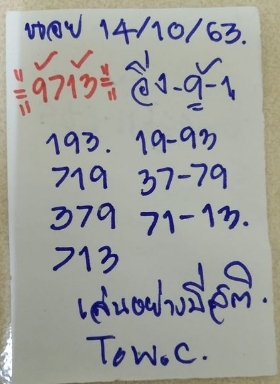 ฮานอย 14/10/63.
=9713= วิ่ง-9-1
193. 19-93
719 37-79
379 71-13.
713
เล่นอย่างมีสติ.
T๐พ.C.